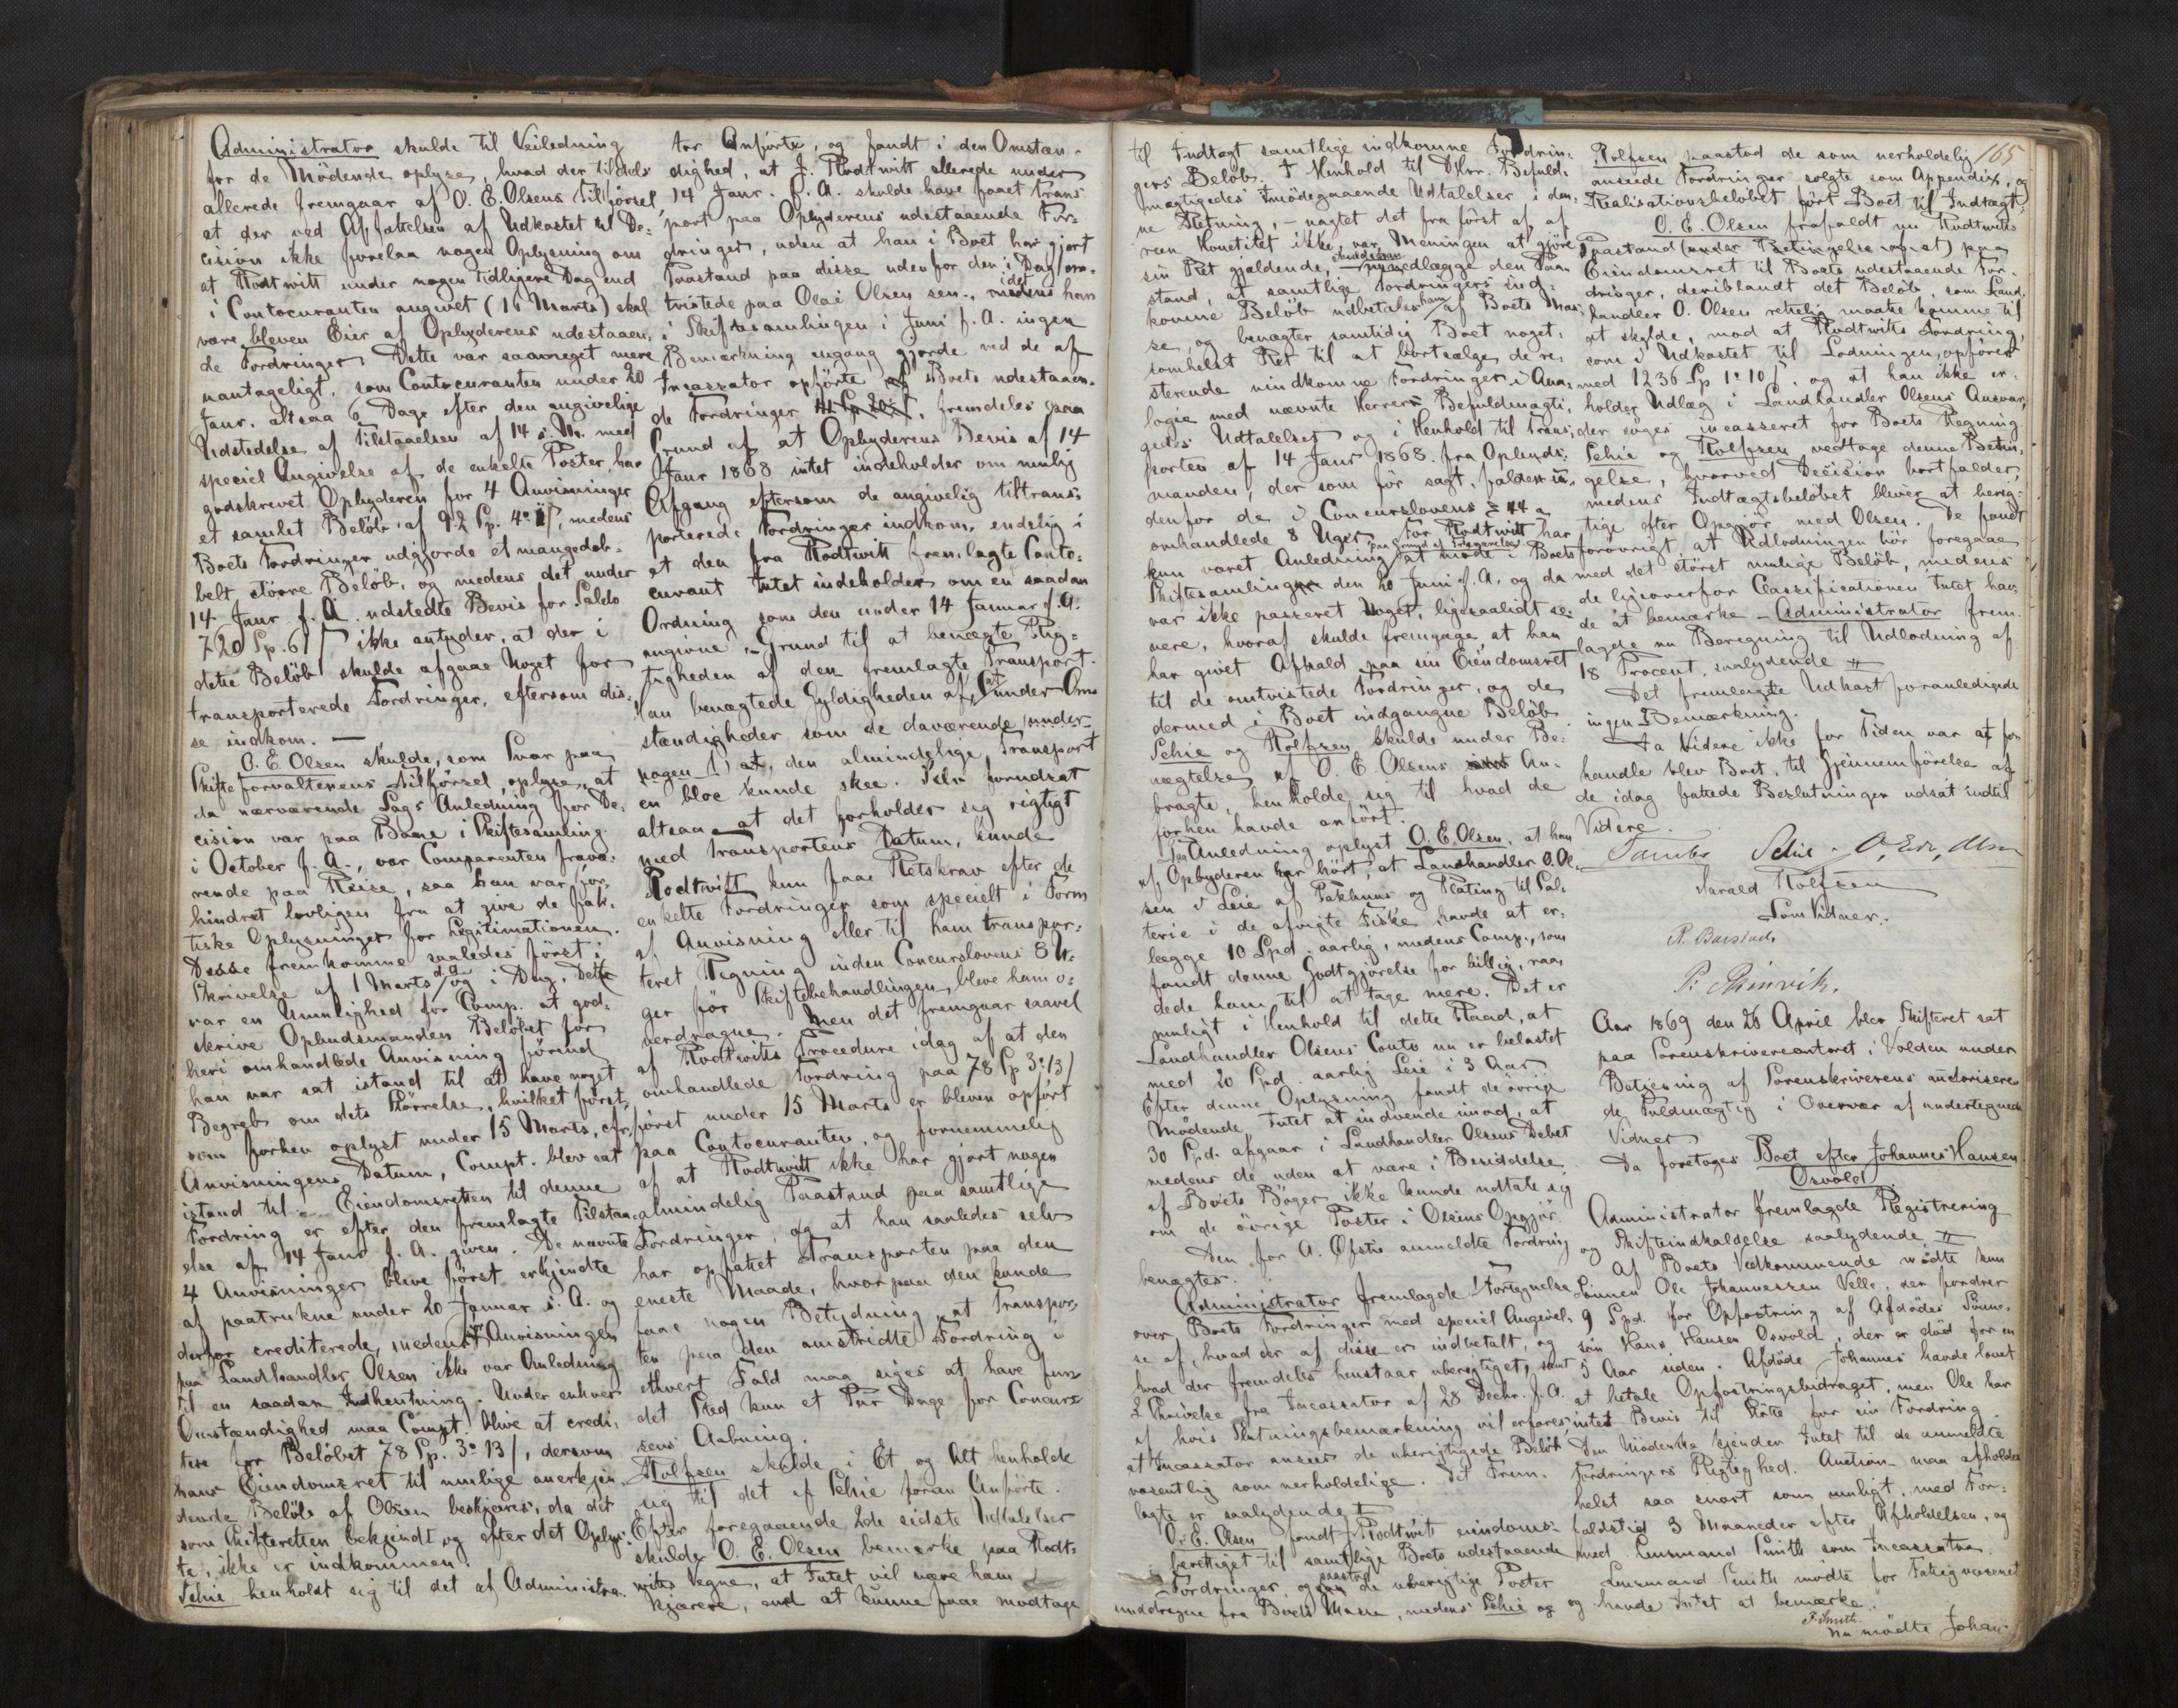 Administrator skulde til Veiledning
for de Mödende oplyse, hvad der tildels
allerede fremgaar af O. E. Olsens Tilförsel,
at der ved Affattelsen af Udkastet til De-
cision ikke forelaa nogen Oplysning om
at Rodtwitt under nogen tidligere Dag end
i Contocuranten angivet (15 Marts) skal
være bleven Eier af Opbyderens udestaaen-
de Fordringer. Dette var saameget mere
uantageligt, som Contocuranten under 20
Janr. altsaa 6 Dage efter den angivelige
Udstedelse af Tilstaaelsen af 14 s. M. med
speciel Angivelse af de enkelte Poster, har
godskrevet Opbyderen for 4 Anvisninger
et samlet Beløb af 92 Sp. medens
Boets Fordringer udgjorde et mangedob-
belt större Belöb, og medens det under
14 Janr f. A. udstedte Bevis for Saldo
720 Sp. 6 ß ikke antyder, at der i
dette Belöb skulde afgaae Noget for
transporterede Fordringer, eftersom dis-
se indkom. —
O. E. Olsen skulde, som Svar paa
Skifteforvalterens Tilförsel, oplyse, at
da nærværende Sags Anledning for De-
cision var paa Bane i Skiftesamling
i October f. A., var Comparenten fravæ-
rende paa Reise, saa han var for-
hindret lovligen fra at give de fak-
tiske Oplysninger for Legitimationen.
Disse fremkomme saaledes först i
Skrivelse af 1 Marts d. A. og i Dag. Dette
var en Umulighed for Comp. at god-
skrive Opbudsmanden Belöbet for
heri omhandlede Anvisning förend
han var sat istand til at have noget
Begreb om dets Störrelse, hvilket först,
som forhen oplyst under 15 Marts, cfr.
Anvisningens Datum, Compt. blev sat
istand til. Eiendomsretten til denne
Fordring er efter den fremlagte Tilstaa-
else af 14 Janr f. A. given. De nævnte
4 Anvisninger bleve först erkjendte
af paatrukne under 20 Januar s. A. og
derfor crediterede, medens for Anvisningen
paa Landhandler Olsen ikke var Anledning
til en saadan Indhentning. Under enhver
Omstændighed maa Compt. blive at credi-
tere for Belöbet 78 Sp. 3 13 ß, dersom
hans Eiendomsret til mulige anerkjen-
dende Belöb af Olsen beskjæres, da det
som Skifteretten bekjendt og efter det Oplys-
te, ikke er indkommen.
Schie henholdt sig til det af Administra-
tor Anförte, og fandt i den Omstæn-
dighed, at J. Rodtwitt allerede under
14 Janr. f. A. skulde have faaet Trans-
port paa Opbyderens udestaaende For-
dringer, uden at han i Boet har gjort
Paastand paa disse udenfor den i Dag om-
tvistede paa Olai Olsen sen., idet han
i Skiftesamlingen i Juni f. A. ingen
Bemærkning engang gjorde ved de af
Incassator opförte Boets udestaaen-
de Fordringer, fremdeles paa
Grund af at Opbyderens Bevis af 14
Janr 1868 intet indeholder om mulig
Afgang eftersom de angivelig tiltrans-
porterede Fordringer indkom, endelig i
at den fra Rodtwitt fremlagte Conto-
curant Intet indeholder om en saadan
Ordning som den under 14 Januar f. A.
angivne, Grund til at benægte Rig-
tigheden af den fremlagte Transport.
Han benægtede Gyldigheden af, at under Om-
stændigheder som de daværende
nogen den almindelige Transport
en bloc kunde skee. Selv forudsat
altsaa at det forholder sig rigtigt
med Transportens Datum, kunde
Rodtwitt kun faae Retskrav efter de
enkelte Fordringer som specielt i Form
af Anvisning eller til ham transpor-
teret Regning inden Concurslovens 8 U-
ger för Skiftebehandlingen, bleve ham o-
verdragne. Men det fremgaar saavel
af Rodtwitts Procedure idag af at den
omhandlede Fordring paa 78 Sp 3 13 ß
först under 15 Marts er bleven opfört
paa Contocuranten, og fornemmelig
af at Rodtwitt ikke har gjort nogen
almindelig Paastand paa samtlige
Fordringer, og at han saaledes selv
har opfattet Transporten paa den
eneste Maade, hvorpaa den kunde
faae nogen Betydning, at Transpor-
ten paa den omstridte Fordring i
ethvert Fald maa siges at have fun-
det Sted kun et Par Dage för Concurs-
sens Aabning.
Rolfsen skulde i Et og Alt henholde
sig til det af Schie foran Anförte.
Efter foregaaende 2de sidste Udtalelser
skulde O. E. Olsen bemærke paa Rodt-
witts Vegne, at Intet vil være ham
kjærere, end at kunne faae modtage
til Indtægt samtlige indkomne Fordrin-
gers Belöb. I Henhold til DHrr. Befuld-
mægtigedes imödegaaende Udtalelser i den-
ne Retning, — uagtet det fra först af af
reen Honetitet ikke var Meningen at gjöre
sin Ret gjældende, skulde han nedlægge den Paa-
stand, at samtlige Fordringers ind-
komne Belöb udbetales ham af Boets Mas-
se, og benægter samtidig Boet noget-
somhelst Ret til at bortsælge de re-
sterende uindkomne Fordringer i Ana-
logie med nævnte Herrers Befuldmægti-
gedes Udtalelser og i Henhold til Trans-
porten af 14 Janr 1868 fra Opbuds-
manden, der som för sagt, falder u-
denfor de i Concurslovens § 44 a
omhandlede 8 Uger. For Rodtwitt har
kun været Anledning at möde i Boets
Skiftesamling den 20 Juni f. A. og da
var ikke passeret Noget, ligesaalidt se-
nere, hvoraf skulde fremgaae, at han
har givet Afkald paa sin Eiendomsret
til de omtvistede Fordringer, og de
dermed i Boet indgangne Belöb.
Schie og Rolfsen skulde under Be-
nægtelse af O. E. Olsens An-
bragte, henholde sig til hvad de
forhen havde anfört.
I Anledning oplyst O. E. Olsen, at han
af Opbyderen har hört, at Landhandler O. Ol-
sen i Leie af Pakhuus og Plating til Sal-
terie i de afvigte Fiske havde at er-
lægge 10 Spd. aarlig, medens Comp., som
fandt denne Godtgjörelse for billig, raa-
dede ham til at tage mere. Det er
muligt i Henhold til dette Raad, at
Landhandler Olsens Conto nu er belastet
med 20 Spd. aarlig Leie i 3 Aar.
Efter denne Oplysning fandt de övrige
Mödende Intet at indvende imod, at
30 Spd. afgaar i Landhandler Olsens Debet
medens de uden at være i Besiddelse
af Boets Böger ikke kunde udtale sig
om de övrige Poster i Olsens Opgjör.
Den for A. Øfsti anmeldte Fordring
benægtes.
Administrator fremlagde Fortegnelse
over Boets Fordringer med speciel Angivel-
se af, hvad der af disse er indbetalt, og
hvad der fremdeles henstaar uberigtiget, samt
Skrivelse fra Incassator af 28 Decbr. f. A.
af hvis Slutningsbemærkning vil erfares,
at Incassator ansees de uberigtigede Belöb
væsentlig som uerholdelige. Det Frem-
lagte er saalydende
O. E. Olsen fandt Rodtwitt eiendoms-
berettiget til samtlige Boets udestaaende
Fordringer, og paastod de uberigtige Poster
unddragne fra Boets Masse, medens Schie og
165
Rolfsen paastod de som uerholdelig
ansede Fordringer solgte som Appendix, og
Realisationsbelöbet fört Boet til Indtægt.
O. E. Olsen frafaldt nu Rodtwitts
Paastand (under Betingelse af at) paa
Eiendomsret til Boets udestaaende For-
dringer, deriblandt det Belöb, som Land-
handler O. Olsen rettelig maatte komme til
at skylde, mod at Rodtwitts Fordring,
som i Udkastet til Lodningen, opföres
med 1236 Sp 1 10 ß. og at han ikke er-
holder Udlæg i Landhandler Olsens Ansvar,
der söges incasseret for Boets Regning.
Schie og Rolfsen vedtage denne Betin-
gelse, hvorved Decision bortfalder,
medens Indtægtsbelöbet bliver at berig-
tige efter Opgjör med Olsen. De fandt
forövrigt at Udlodningen bör foregaae
med det störst mulige Belöb, medens
de ligeoverfor Classificationen Intet hav-
de at bemærke. — Administrator frem-
lagde nu Beregning til Udlodning af
18 Procent, saalydende
Det fremlagte Udkast foranledigede
ingen Bemærkning.
Da Videre ikke for Tiden var at for-
handle blev Boet, til Gjennemförelse af
de idag fattede Beslutninger udsat indtil
Videre.
Schie O, Edv, Olsen
Harald Rolfsen
Som Vidner.
P. Steinvik.
Aar 1869 den 26 April blev Skifteret sat
paa Sorenskrivercontoret i Volden under
Betjening af Sorenskriverens autorisere-
de Fuldmægtig i Overvær af undertegnede
Vidner
Da foretages Boet efter Johannes Hansen
Osvold.
Administrator fremlagde Registrering
og Skifteindkaldelse saalydende
Af Boets Vedkommende mödte kun
Sönnen Ole Johannessen Velle, der fordrer
9 Spd. for Opfostring af Afdödes Sönne-
sön Hans Hansen Osvold, der er död for en
5 Aar siden. Afdöde Johannes havde lovet
at betale Opfostringsbidraget, men Ole har
intet Bevis til Stötte for sin Fordring.
Den Mödende kjender Intet til de anmeldte
Fordringers Rigtighed. Auction maa afholdes
helst saa snart som muligt, med For-
faldstid 3 Maaneder efter Afholdelsen, og
med Lensmand Smith som Incassator.
Lensmand Smith mödte for Fattigvæsenet
og havde Intet at bemærke.
F. Smith.
Nu mödte Johan-